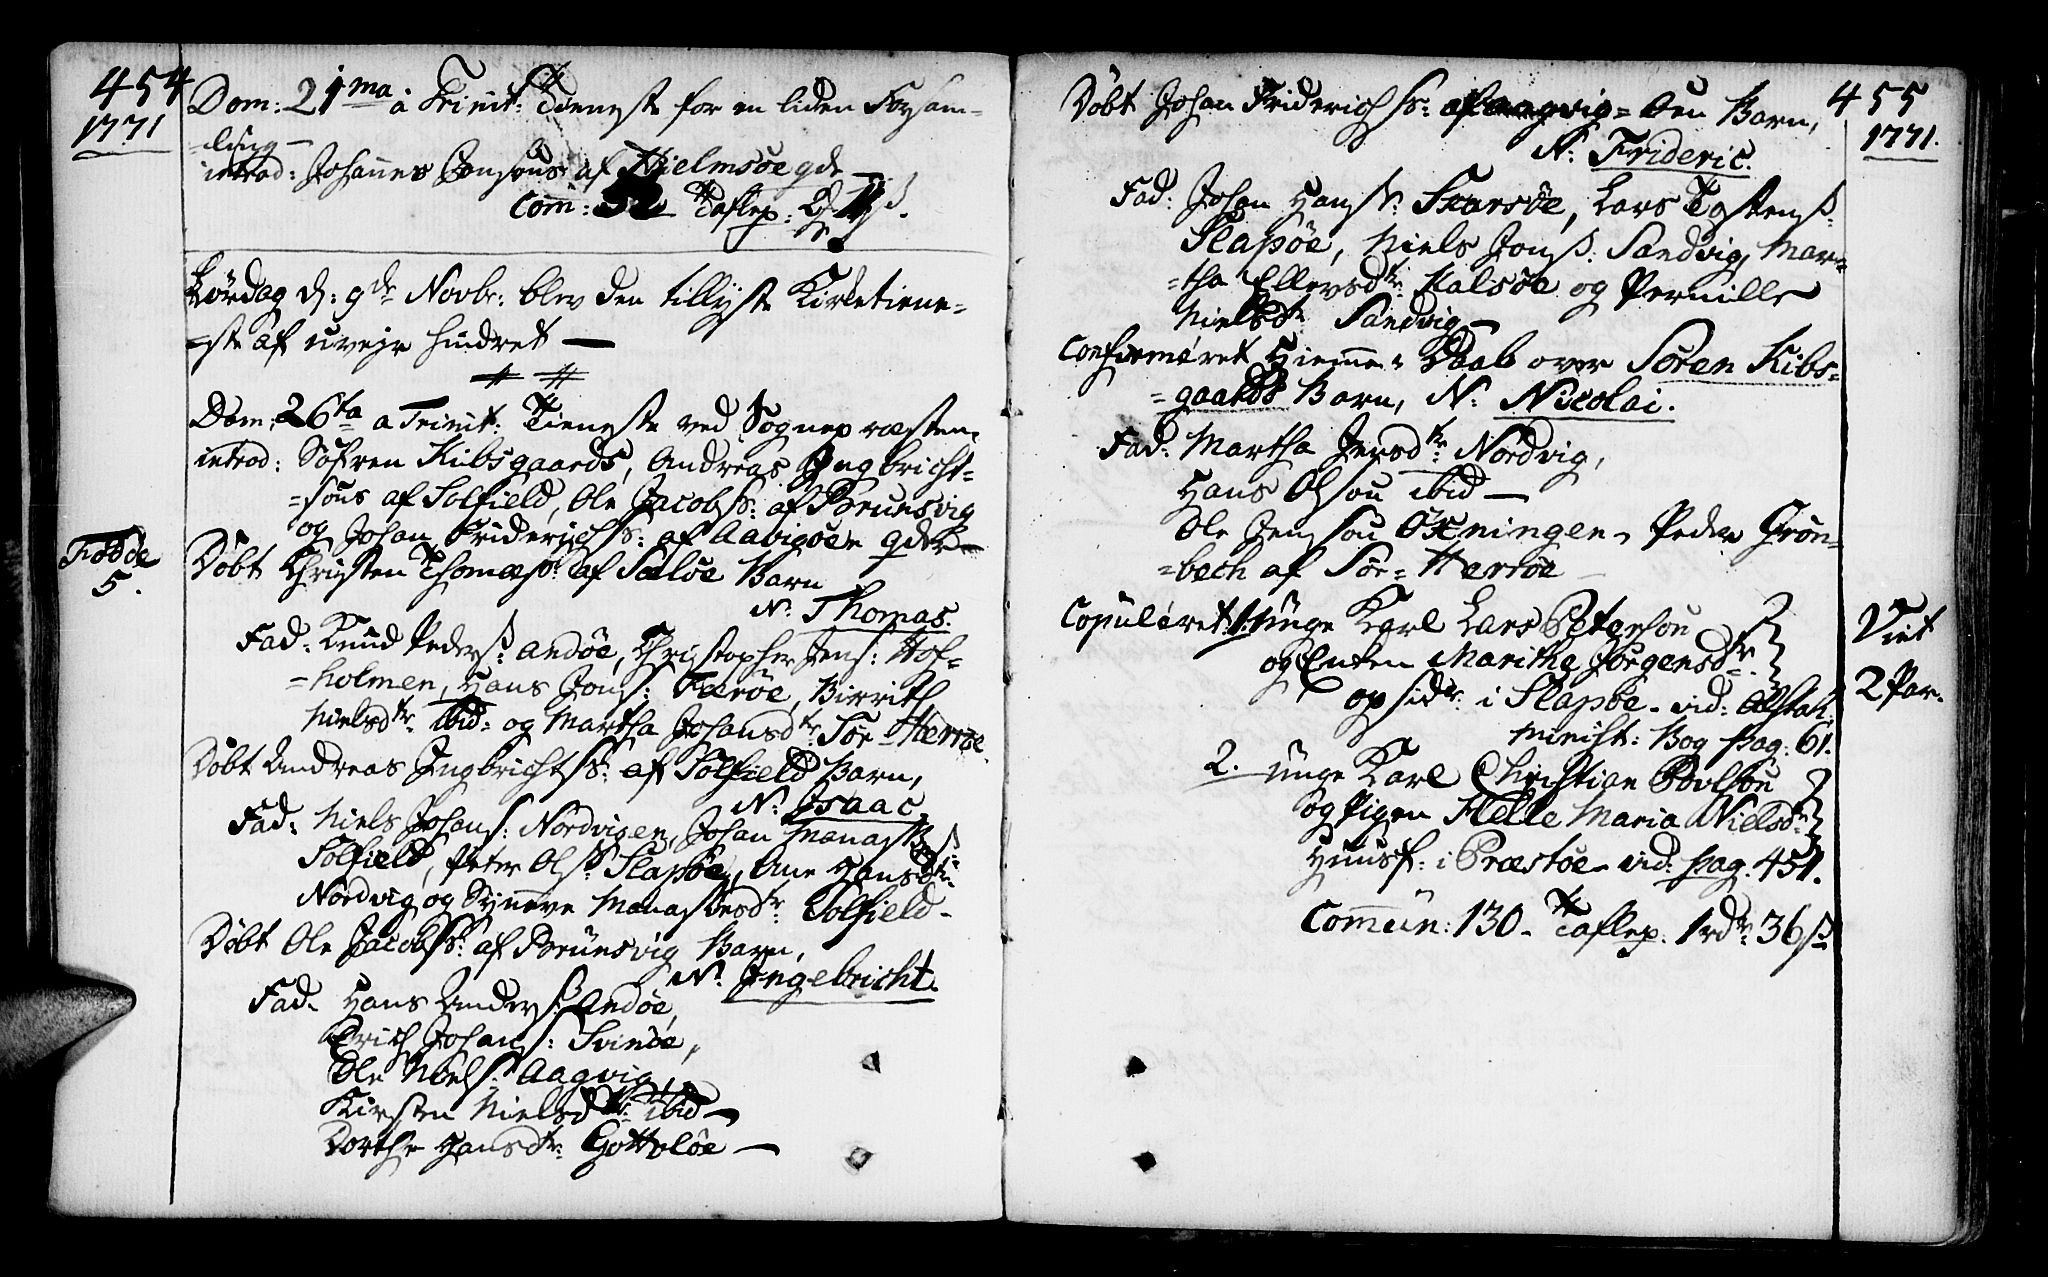 454
1771
Dom: 21ma a Trinit: Tieneste for en liden Forsam-
-ling -
introd: Johannes Jonsøns af Hielmsøe qde
Com: Taflep:
Lørdag d: 9de Novbr: blev den tillyste Kirketiene-
-ste af uvejr hindret —
Dom: 26ta a Trinit: Tieneste ved Sognepræsten,
introd: Søfren Kibsgaards, Andreas Ingbricht-
-søns af Solfield, Ole Jacobss: af Brunsvig
og Johan Friderichss: af Aavigøen qder -
Fødde
5.
Døbt Christen Thomæss: af Sæløe Barn
N: Thomas.
Fad: Knud Peders: Andøe, Christopher Jens: Hof-
-holmen, Hans Jons: Færøe, Birrith
Nielsdtr: ibid: og Martha Johansdtr: Sør-Herrøe.
Døbt Andreas Ingbrichtss: af Solfield Barn,
N: Isaac
Fad: Niels Johans: Nordvigen, Johan Manass:
Solfield, Peter Olss: Slapøe, Ane Hansdtr:
Nordvig og Synneve Manassesdtr: Solfield -
Døbt Ole Jacobss: af Brunsvig Barn,
N: Ingebricht.
Fad. Hans Anders: Andøe,
Erich Johans: Svinøe,
Ole Niels: Aagvig,
Kirsten Nielsdtr: ibid -
Dorthe Hansdtr: Gottvløe —
455
1771.
Døbt Johan Friderichss: af Aagvig-Øen Barn,
N: Frideric.
Fad: Johan Hanss: Skarsøe, Lars Tostenss:
Slapøe, Niels Jonss: Sandvig, Mar-
-tha Ellevsdtr: Kalsøe og Pernille
Nielsdtr Sandvig -
Confirmeret Hiemme-Daab over Søren Kibs-
-gaards Barn, N: Nicolai.
Fad: Martha Jensdtr: Nordvig,
Hans Olson ibid —
Ole Jenson Øxningen, Peder Grøn-
-bech af Sør-Herrøe
Copuleret 1. unge Karl Lars Peterson
og Enken Marithe Jørgensdtr:
opsidr: i Slapøe - vid: Alstah:
Minist: Bog pag: 61.
Viet
2 Par.
2. unge Karl Christian Povlson
og Pigen Helle Maria Nielsdtr
Huusf: i Præstøe - vid: pag. 451.
Commun: 130 - Taflep: 1 rdr: 36 ß